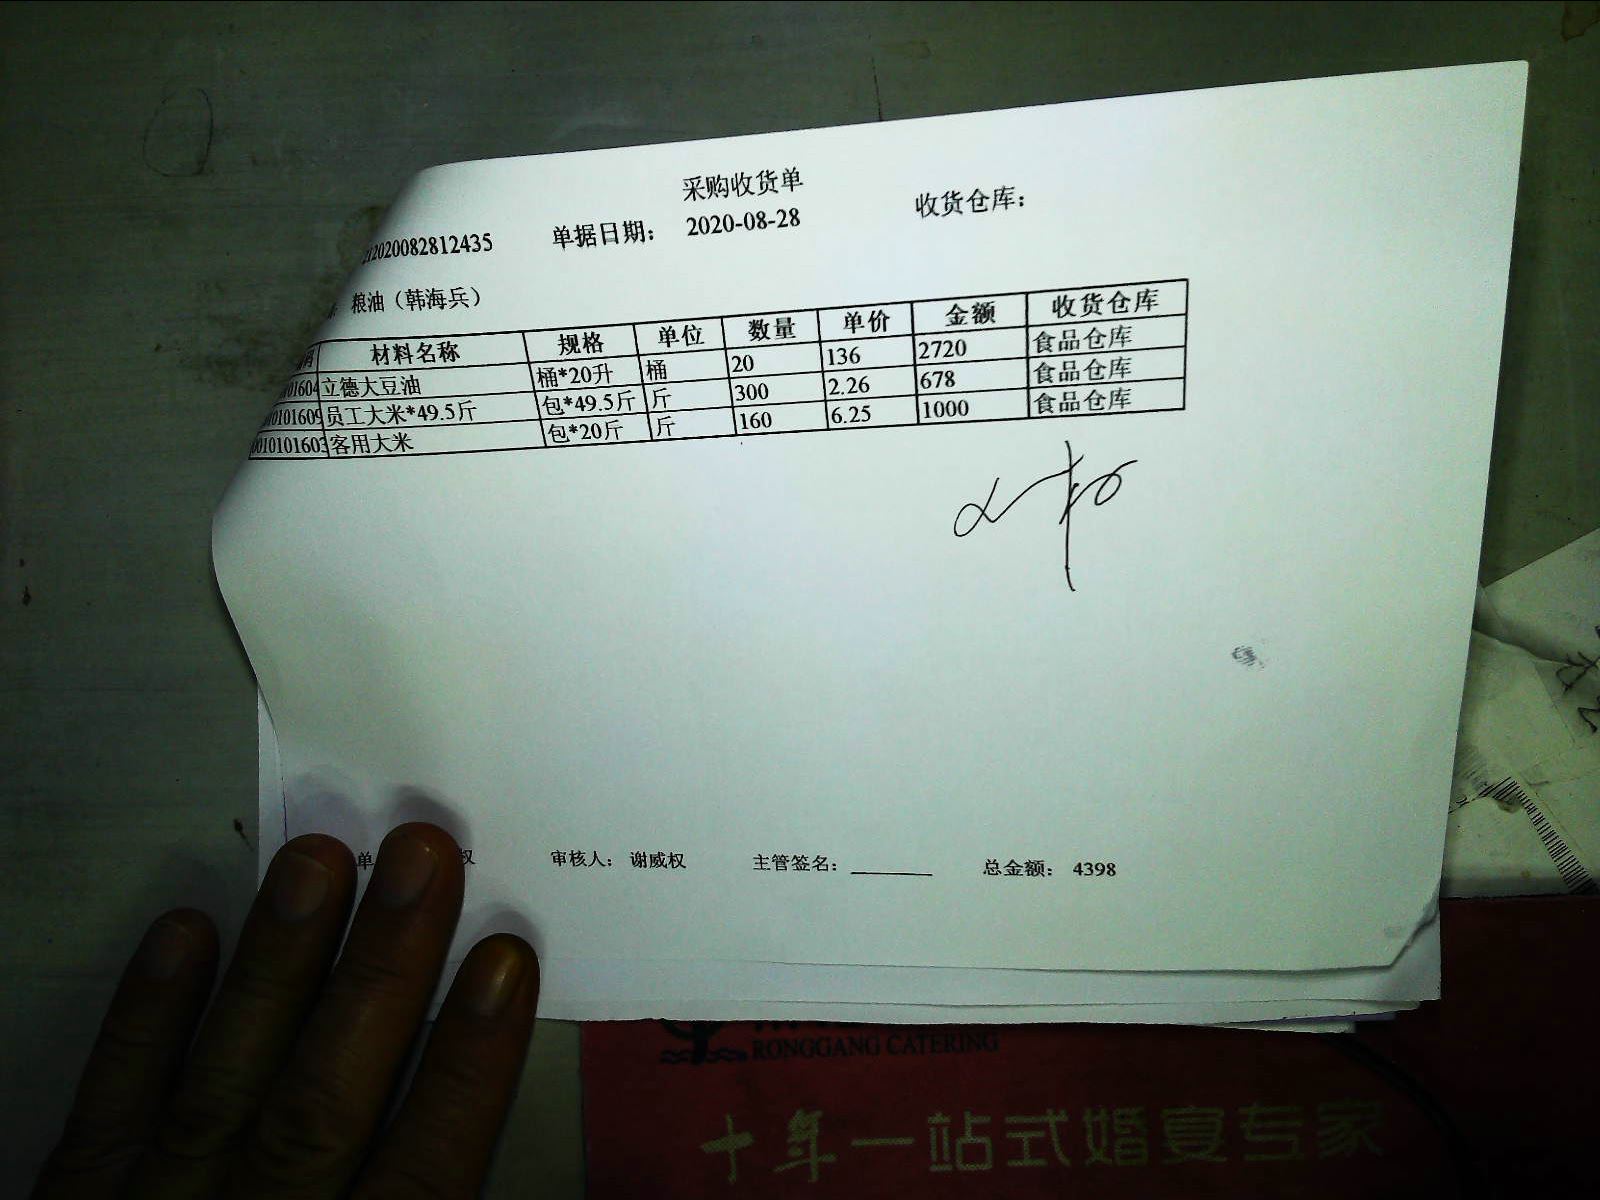 采购收货单
2020082812435 单据日期： 2020-08-28 收货仓库：
粮油（韩海兵）
材料名称 规格 单位 数量 单价 金额 收货仓库
01604 立德大豆油 桶*20升 桶 20 136 2720 食品仓库
0101609 员工大米*49.5斤 包*49.5斤 斤 300 2.26 678 食品仓库
0010101603 客用大米 包*20斤 斤 160 6.25 1000 食品仓库
单 权 审核人： 谢威权 主管签名： 总金额： 4398
RONGGANG CATERING
十年一站式婚宴专家